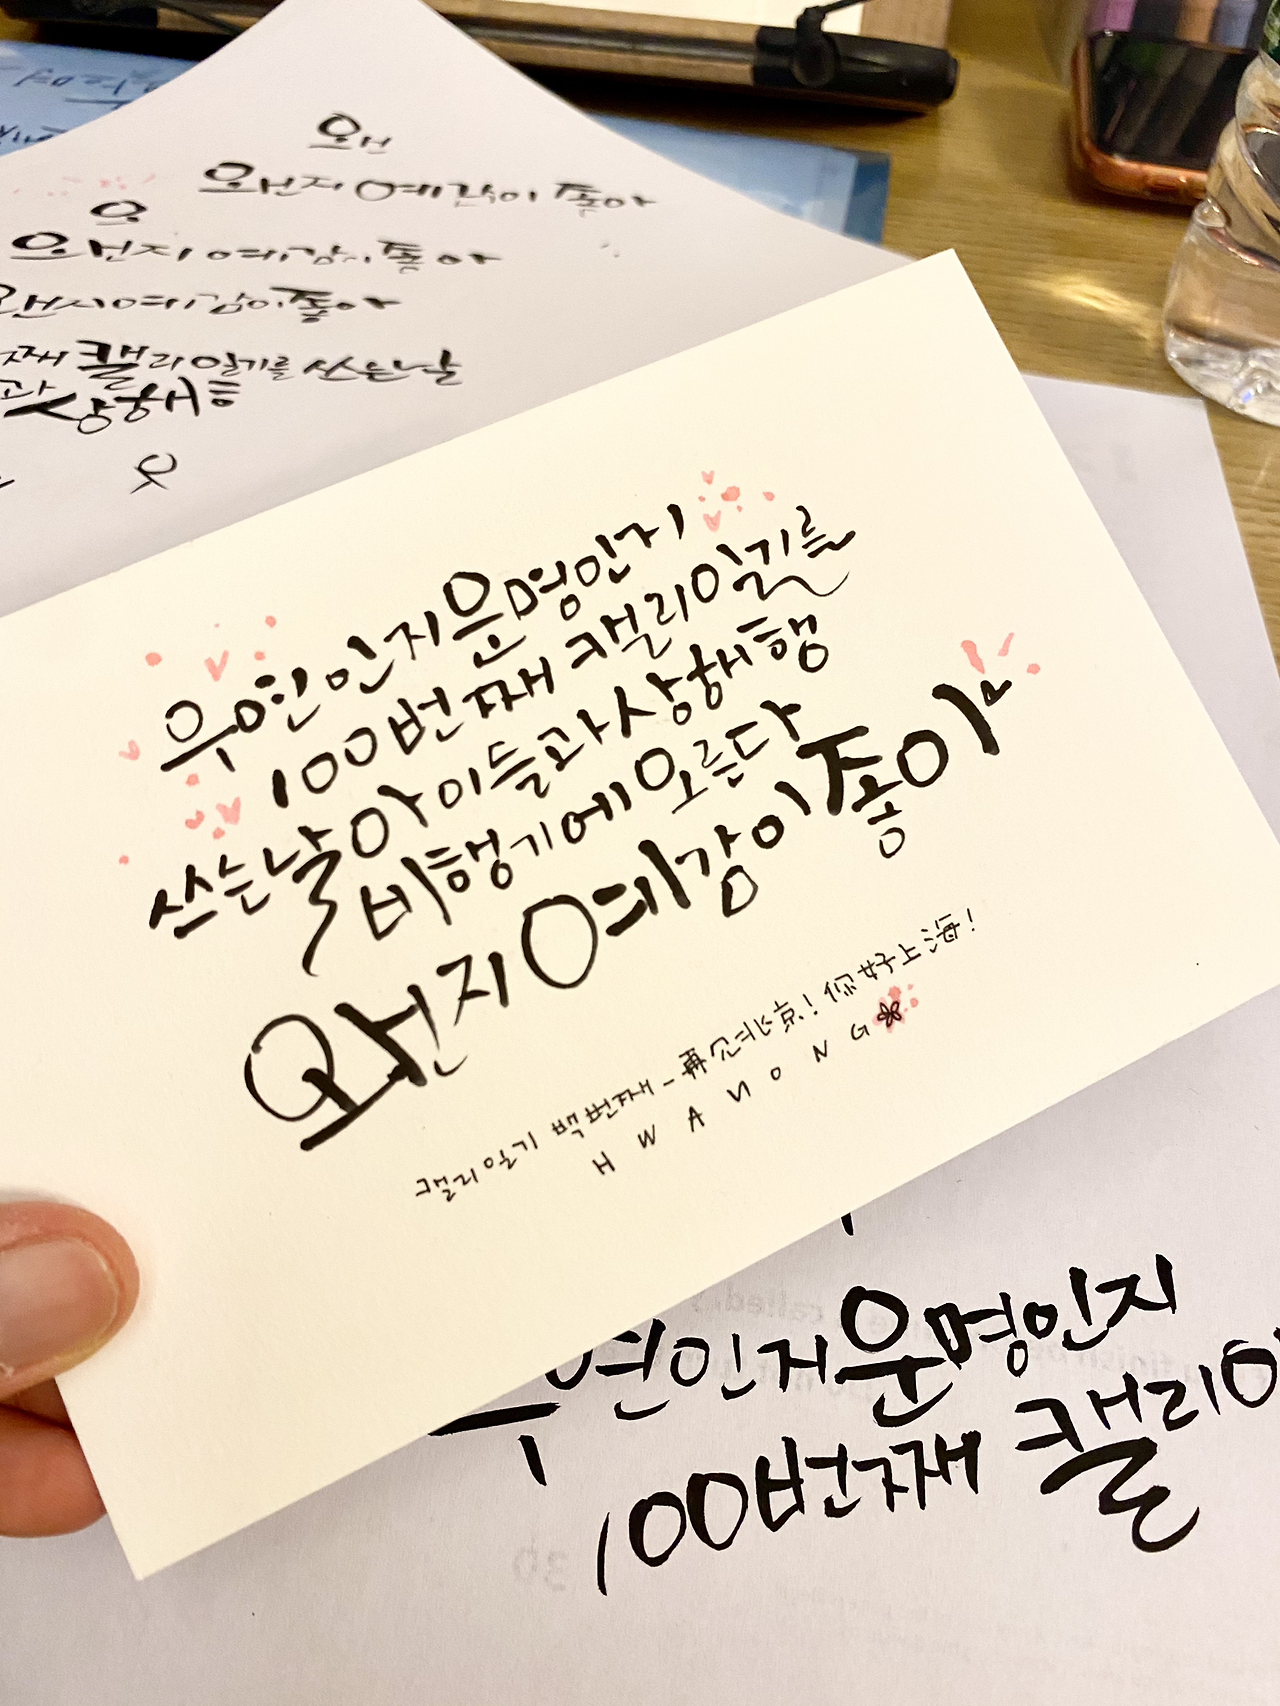 왠
왠지 예감이 좋아
왠
왠지 예감이 좋아
왠지 예감이 좋아
째 캘리 일기를 쓰는 날
과 상해
우연인지 운명인지
100번째 캘리일기를
쓰는 날 아이들과 상해행
비행기에 오른다
왠지 예감이 좋아
캘리일기 백번째 - 再见北京! 你好上海!
HWANONG
연인지 운명인지
100번째 캘리이
30